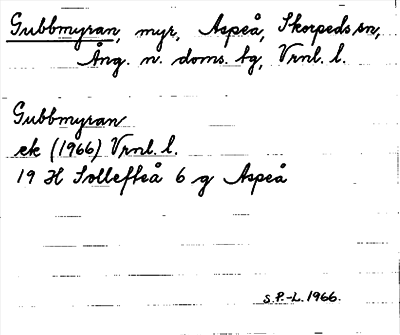 Gubbmyran, myr, Aspeå, Skorpeds sn,
Ång. n. doms. bg, Vrnl. l.
Gubbmyran
ek (1966) Vrnl. l.
19 H Sollefteå 6 g Aspeå
S.P.-L. 1966.